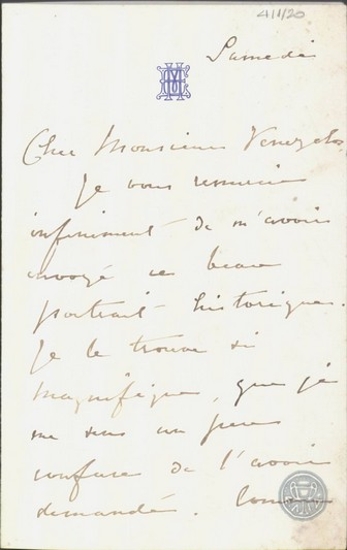 4/1/20
Samedi
Cher Monsieur Venezelos,
Je vous remercie
infiniment de m'avoir
envoyé ce beau
portrait historique.
Je le trouve si
magnifique, que je
me sens un peu
confuse de l'avoir
demandé.